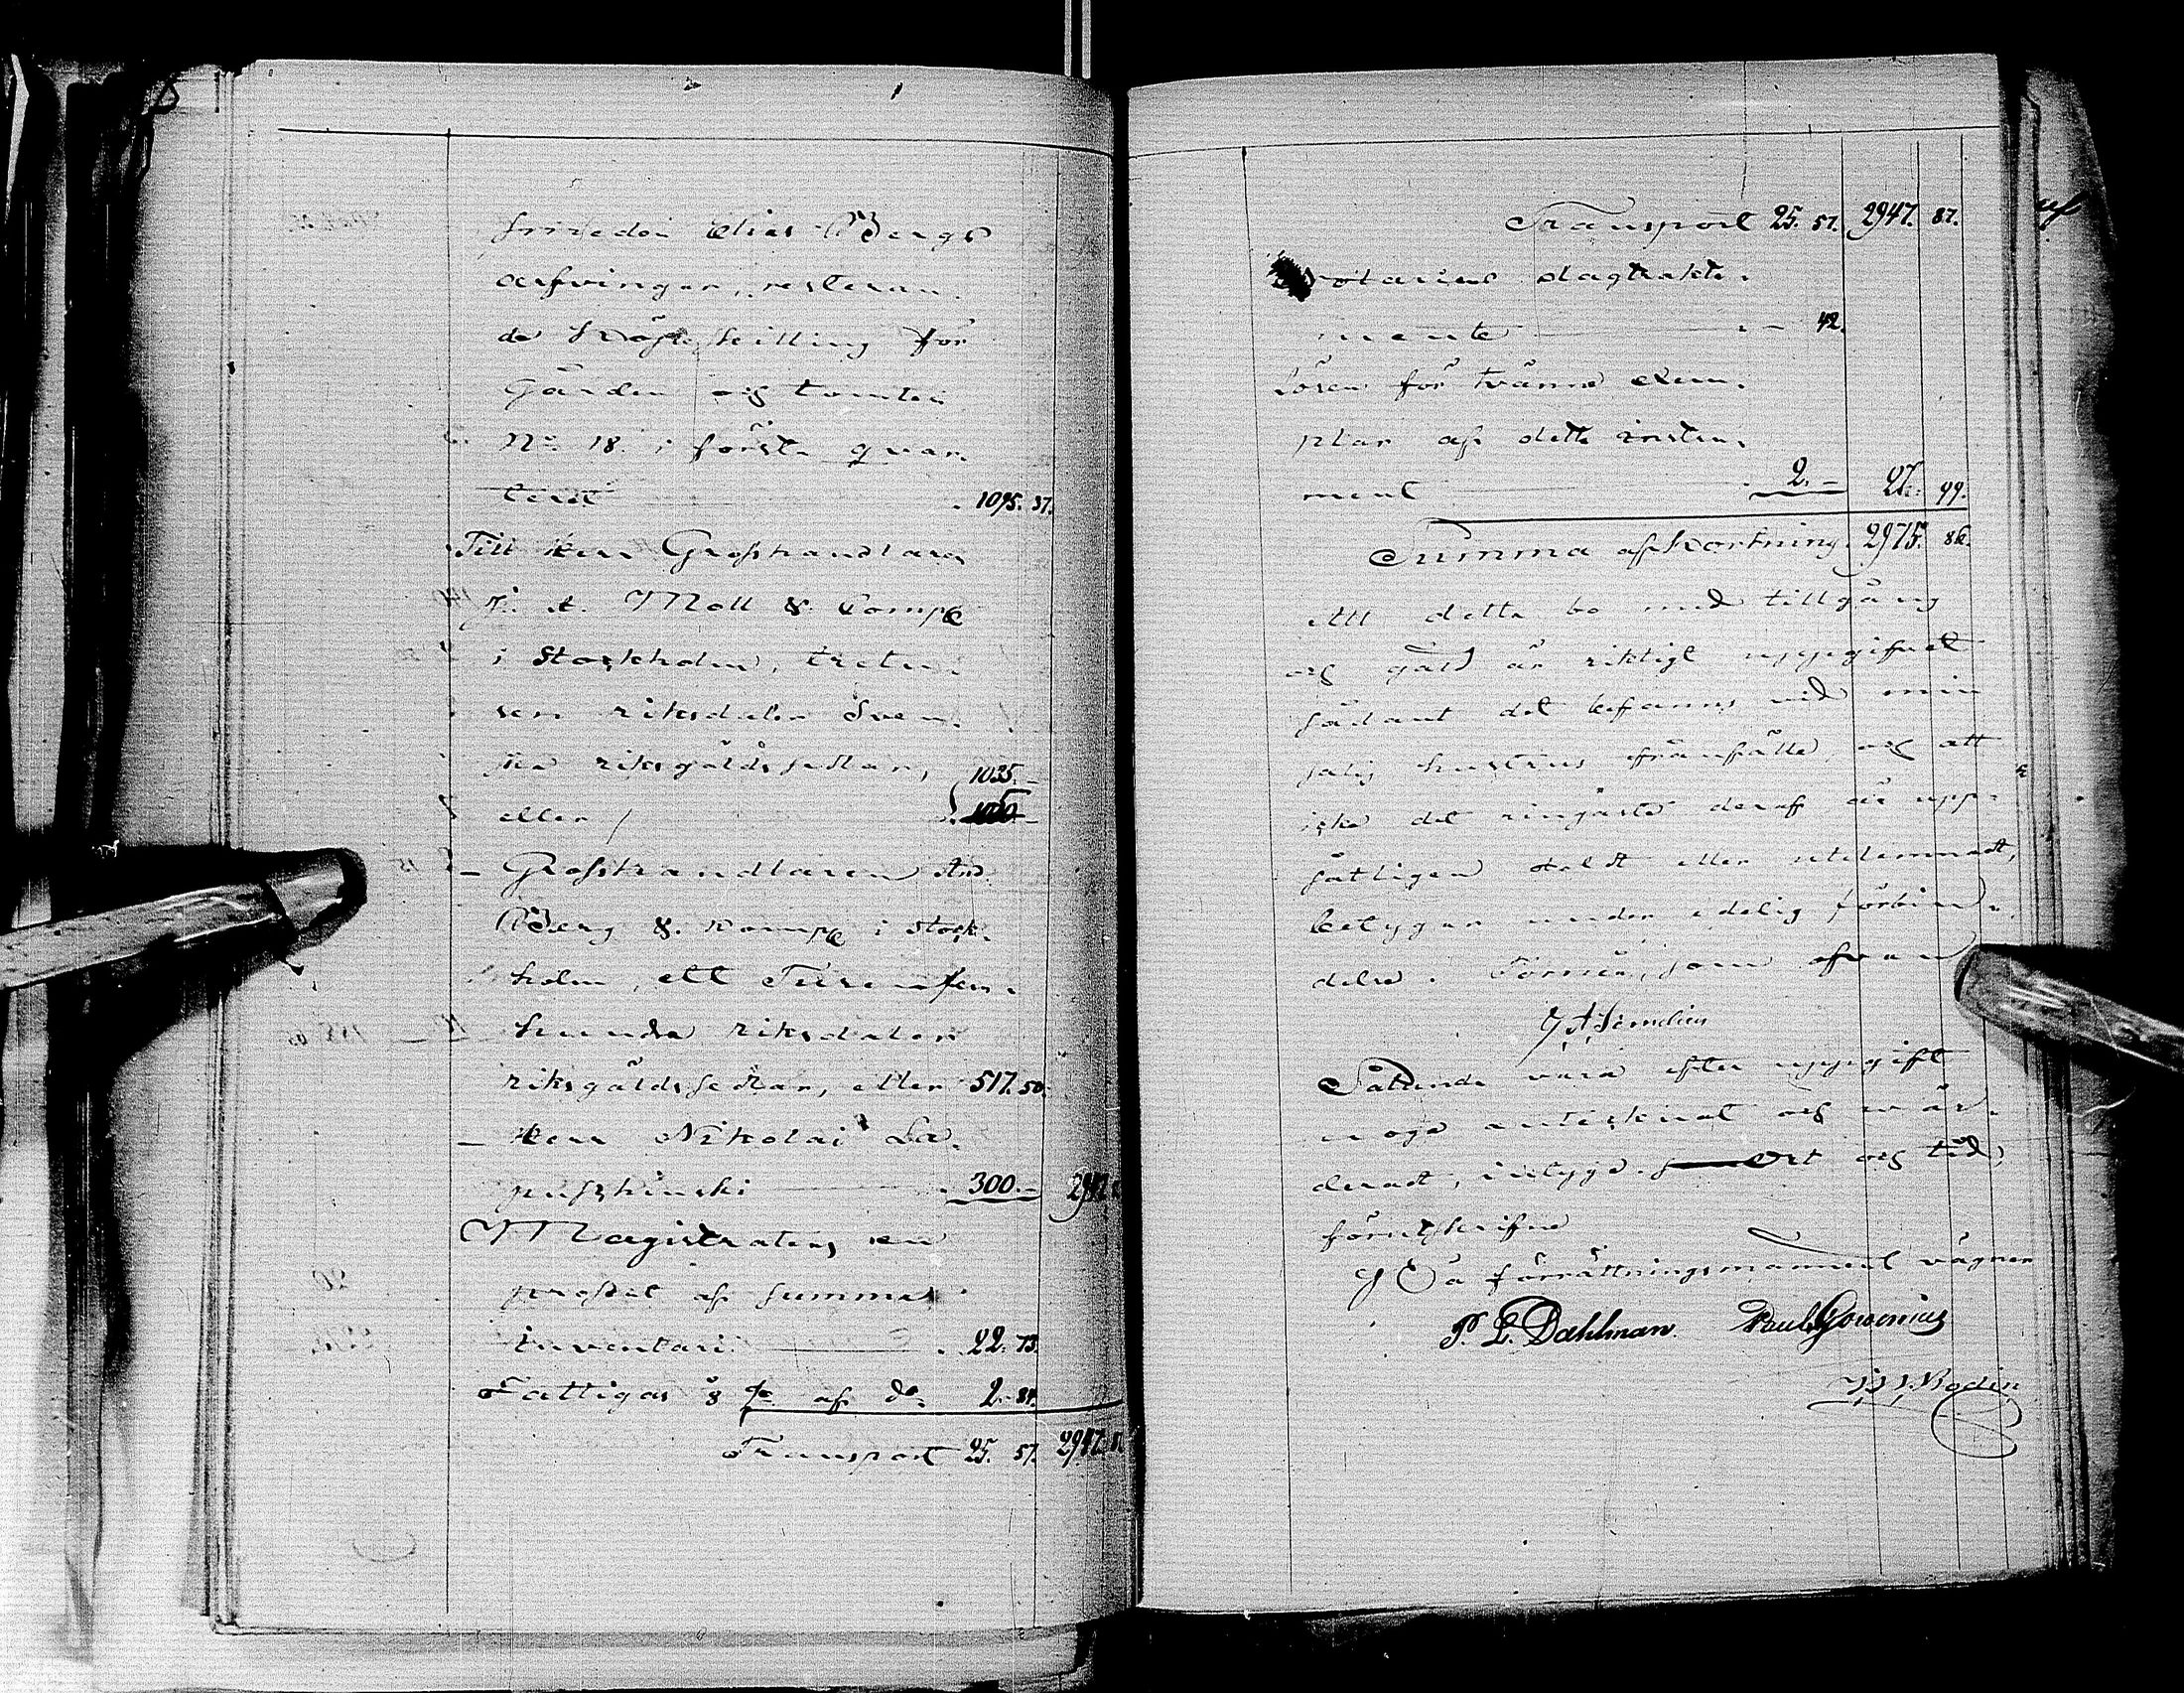 Elias Bergs
arfvingar, resteran
de Köpeskilling för
Gården och tomten
No. 18. i första qvar
teret 1095. 37.
Till Herr Grosshandlaren
J. A. Moll & Compe
i Stockholm, tretu
sen riksdaler Sven
ska riksgäldssedlar,
eller 1035.-
- Grosshandlaren And.
Berg & Kompe i Stock
holm, ett Tusen fem
hundra riksdaler
riksgäldssedlar, eller 517. 50.
- Herr Nikolai La
puschinski 300.- 2947
Magistratens en
procent af summa
inventarii 22. 73.
Fattigas af do 2. 84.
Transport 25. 57. 2947. 87
Transport 25. 57. 2947. 87.
Notarius dagtrakta
mente - 42.
Lösen för tvänne exem
plar af detta instru
ment 2.- 27. 99.
Summa afkortning 2975. 86.
Att detta bo med tillgång
och gäld är riktigt uppgifvet
sådant det befanns vid min
salig hustrus frånfälle, och att
icke det ringaste deraf är upp
såtligen doldt eller utelemnadt,
betygar under edelig förbin
delse. Torneå, som ofvan
Sålunda vara efter uppgift
noga antecknat och vär
deradt, intyga. Ort och tid,
förutskrifne
På förrättningsmännens vägnar
P. L. Dahlman. Paul
Bodin